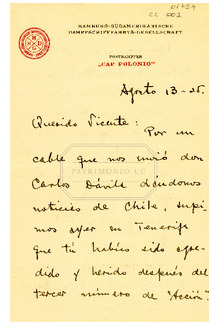 01754
CC 002
HAMBURG-SÜDAMERIKANISCHE
DAMPFSCHIFFFAHRTS-GESELLSCHAFT
POSTDAMPFER
„CAP POLONIO"
Agosto 13-25.
Querido Vicente:
Por un
cable que nos envió don
Carlos Dávila dándonos
noticias de Chile, supi-
mos ayer en Tenerife
que tú habías sido agre-
dido y herido después del
tercer número de "Acción".
PATRIMONIO UC